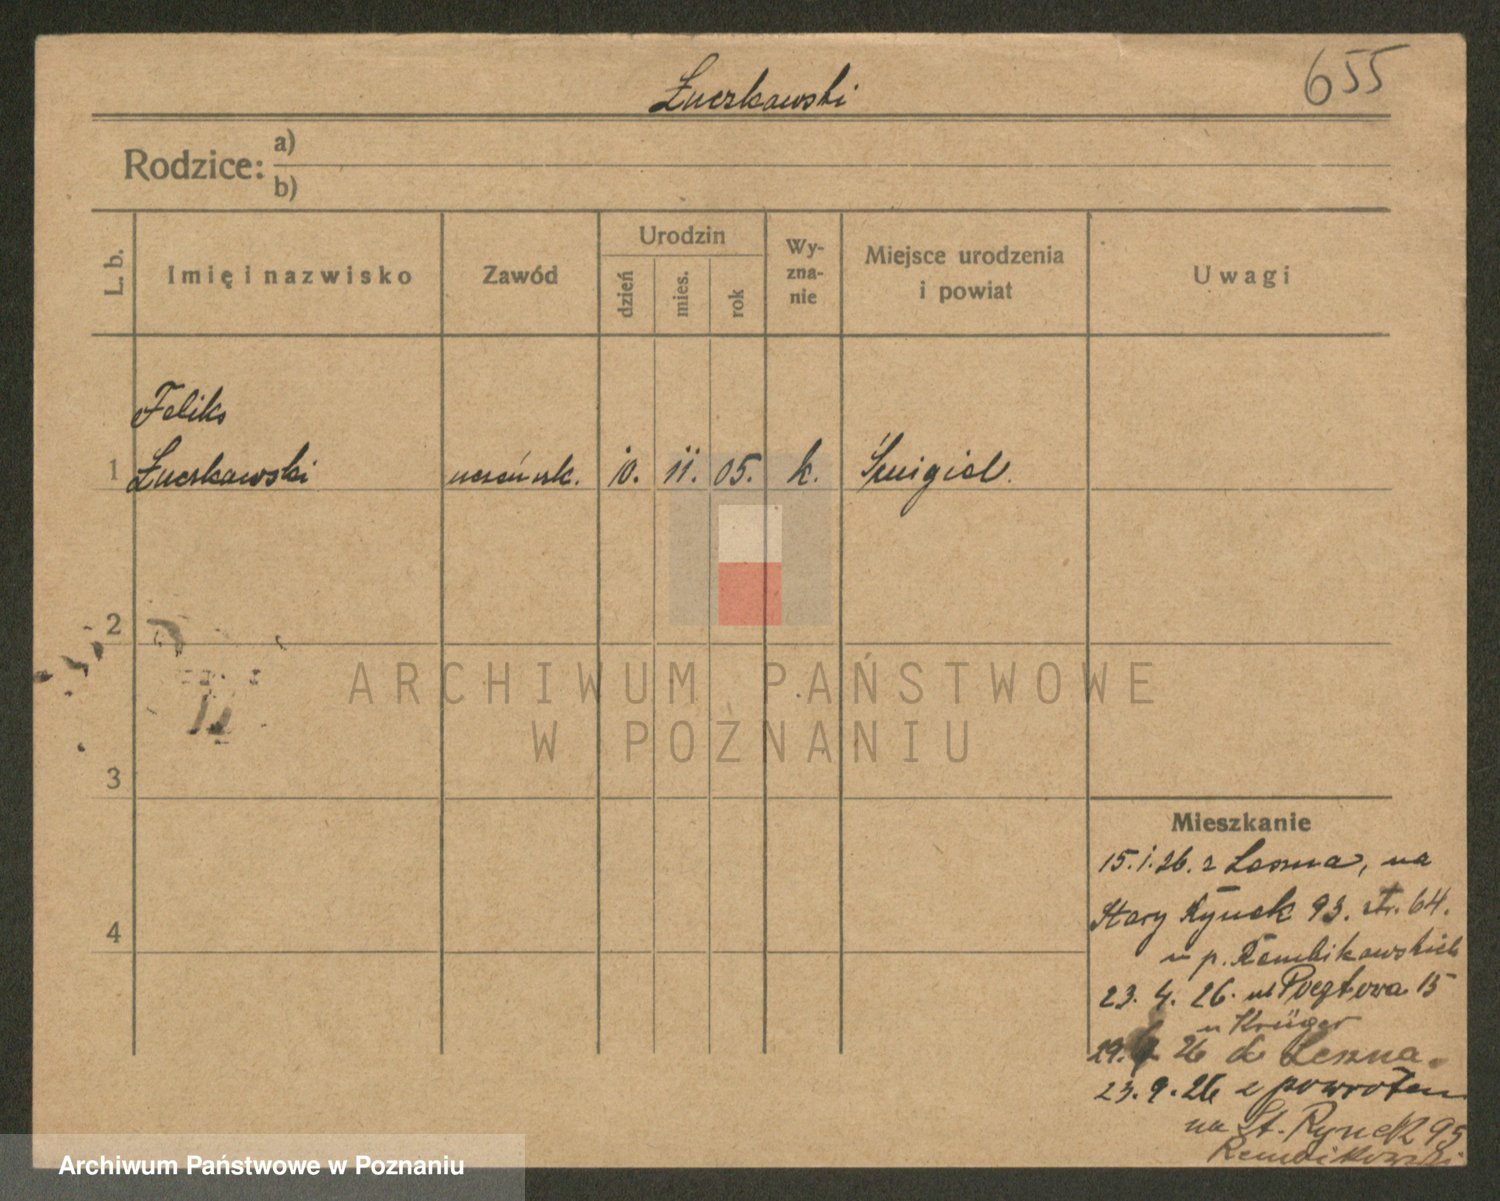 Łuczkowski
655
Rodzice: a)
b)
L. b.
Imię i nazwisko
Zawód
Urodzin
dzień
mies.
rok
Wy-
zna-
nie
Miejsce urodzenia
i powiat
Uwagi
Feliks
1 Łuczkowski
10. 11. 05. k. Śmigiel.
2
3
4
Mieszkanie
15.1.26. z Leszna, na
Stary Rynek 93. str. 64.
u p. Rembikowskich
23. 4. 26. ul Pocztowa 15
u Krüger
29. 26 do Leszna.
23. 9. 26 z powrotem
na St. Rynek 95
Rembikowski
ARCHIWUM PAŃSTWOWE
W POZNANIU
Archiwum Państwowe w Poznaniu